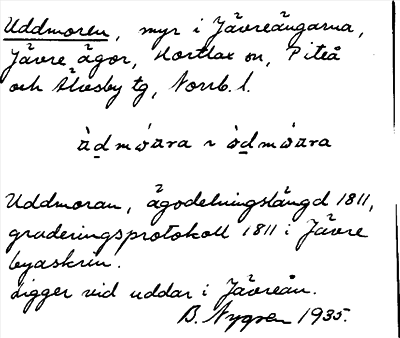 Uddmoren, myr i Jävreängarna,
Jävre ägor, Hortlax sn, Piteå
och Älvsby tg, Norrb. l.
Uddmoran, ägodelningslängd 1811,
graderingsprotokoll 1811 i Jävre
byaskrin.
Ligger vid uddar i Jävreån.
B. Nygren 1935.